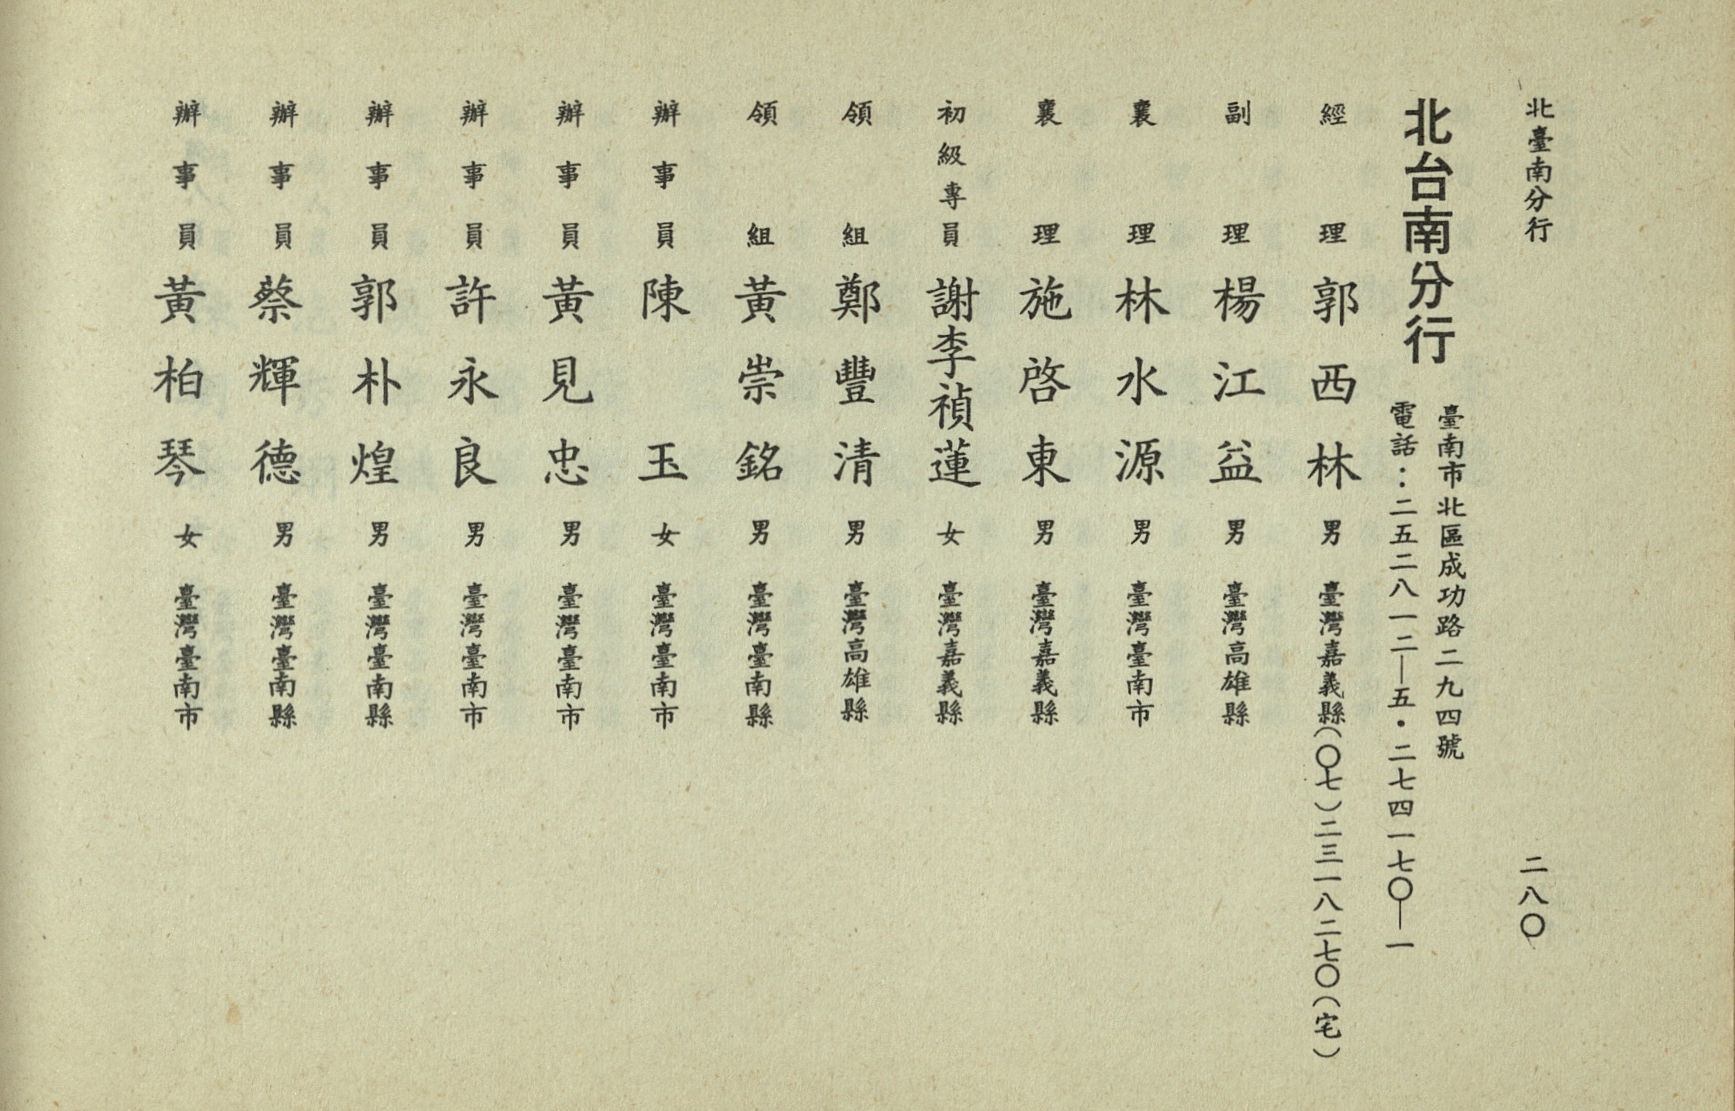 北臺南分行
二八〇
北台南分行
臺南市北區成功路二九四號
電話：二五二八一二—五・二七四一七〇—一
經理 郭西林 男 臺灣嘉義縣(〇七)二三一八二七〇(宅)
副理 楊江益 男 臺灣高雄縣
襄理 林水源 男 臺灣臺南市
襄理 施啓東 男 臺灣嘉義縣
初級專員 謝李禎蓮 女 臺灣嘉義縣
領組 鄭豐清 男 臺灣高雄縣
領組 黃崇銘 男 臺灣臺南縣
辦事員 陳玉 女 臺灣臺南市
辦事員 黃見忠 男 臺灣臺南市
辦事員 許永良 男 臺灣臺南市
辦事員 郭朴煌 男 臺灣臺南縣
辦事員 蔡輝德 男 臺灣臺南縣
辦事員 黃柏琴 女 臺灣臺南市